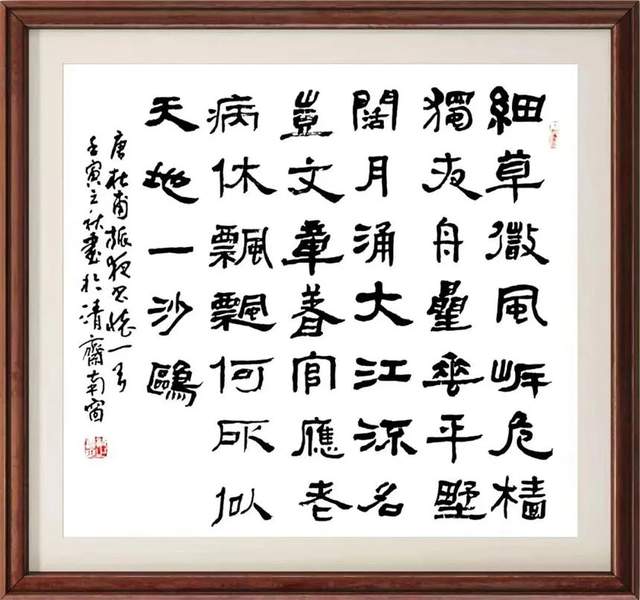 細草微風岸危檣
獨夜舟星垂平野
闊月涌大江流名
豈文章著官應老
病休飄飄何所似
天地一沙鷗
唐杜甫旅夜书懷一首
壬寅之秋書於清齋南窗